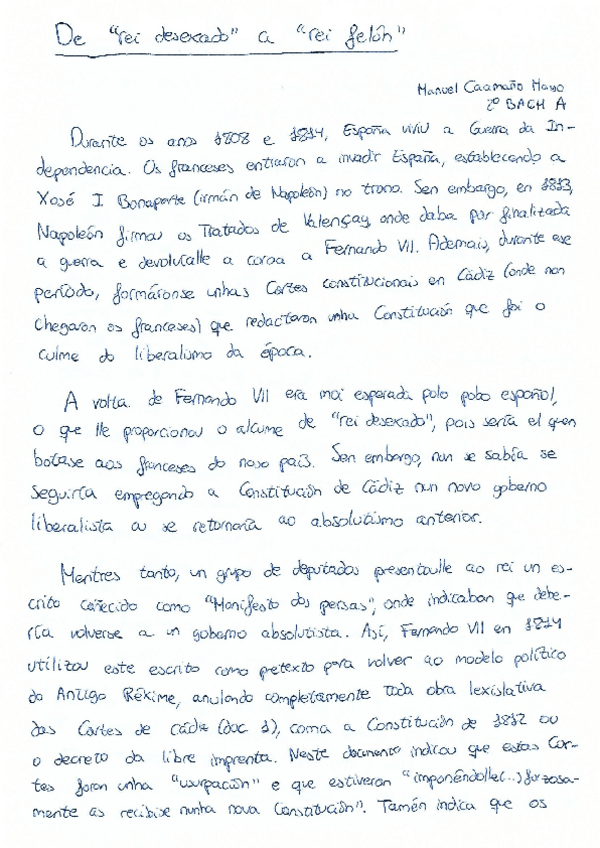 De "rei desexado" a "rei felón"
Manuel Caamaño Mayo
2º BACH A
Durante os anos 1808 e 1814, España viviu a Guerra da In-
dependencia. Os franceses entraron a invadir España, establecendo a
Xosé I Bonaparte (irmán de Napoleón) no trono. Sen embargo, en 1813,
Napoleón firmou os Tratados de Valençay, onde daba por finalizada
a guerra e devolvíalle a coroa a Fernando VII. Ademais, durante ese
período, formáronse unhas Cortes constitucionais en Cádiz (onde non
chegaron os franceses) que redactaron unha Constitución que foi o
culme do liberalismo da época.
A volta de Fernando VII era moi esperada polo pobo español,
o que lle proporcionou o alcume de "rei desexado", pois sería el quen
botase aos franceses do noso país. Sen embargo, non se sabía se
seguiría empregando a Constitución de Cádiz nun novo goberno
liberalista ou se retornaría ao absolutismo anterior.
Mentres tanto, un grupo de deputados presentoulle ao rei un es-
crito coñecido como "Manifesto dos persas", onde indicaban que debe-
ría volverse a un goberno absolutista. Así, Fernando VII en 1814
utilizou este escrito como pretexto para volver ao modelo político
do Antigo Réxime, anulando completamente toda obra lexislativa
das Cortes de Cádiz (doc 1), coma a Constitución de 1812 ou
o decreto da libre imprenta. Neste documento indicou que estas Cor-
tes foron unha "usurpación" e que estiveron "imponéndolle(...) forzosa-
mente as recibise nunha nova Constitución". Tamén indica que os